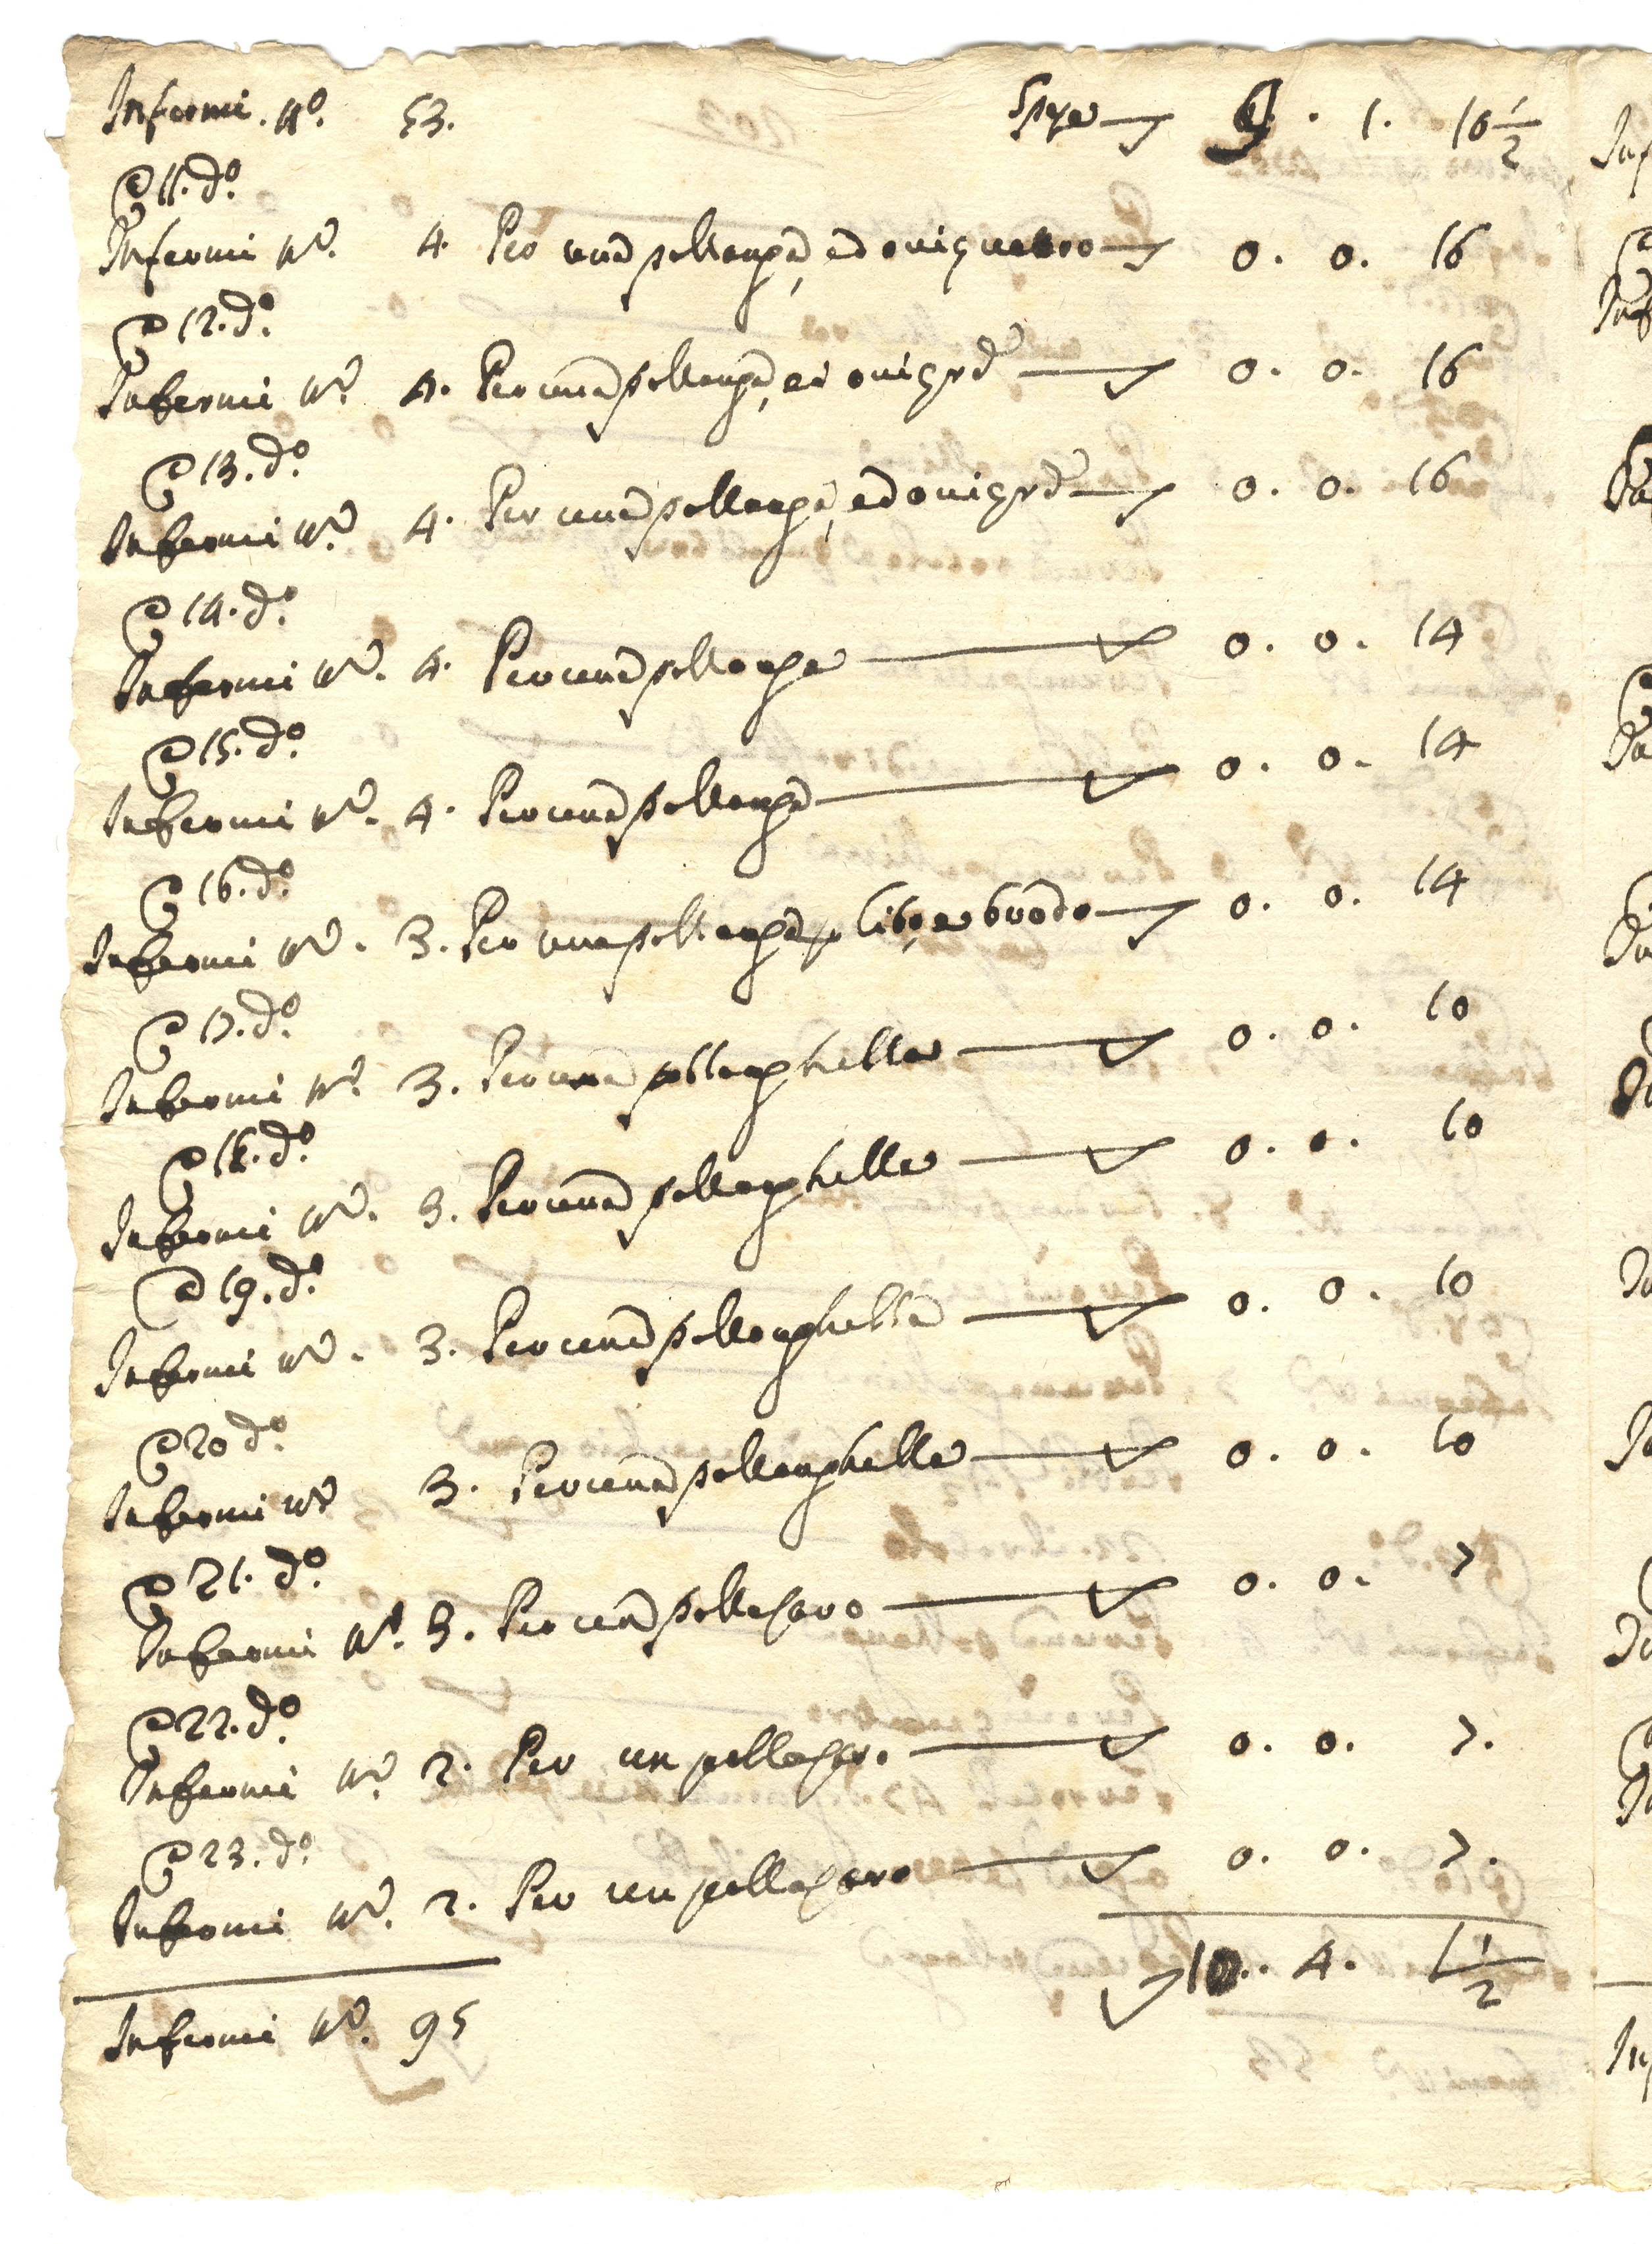 Infermi. N.º 53. Spese 9. 1. 16 1/2
A 11. d.º
Infermi N.º 4. Per una pollanga, ed ovi quattro 0. 0. 16
A 12. d.º
Infermi N.º 4. Per una pollanga, ed ovi 0. 0. 16
A 13. d.º
Infermi N.º 4. Per una pollanga, ed ovi 0. 0. 16
A 14. d.º
Infermi N.º 4. Per una pollanga 0. 0. 14
A 15. d.º
Infermi N.º 4. Per una pollanga 0. 0. 14
A 16. d.º
Infermi N.º 3. Per una pollanga p cibo, e brodo 0. 0. 14
A 17. d.º
Infermi N.º 3. Per una pollanghella 0. 0. 10
A 18. d.º
Infermi N.º 3. Per una pollanghella 0. 0. 10
A 19. d.º
Infermi N.º 3. Per una pollanghella 0. 0. 10
A 20 d.º
Infermi N.º 3. Per una pollanghella 0. 0. 10
A 21. d.º
Infermi N.º 3. Per un pollastro 0. 0. 7
A 22. d.º
Infermi N.º 2. Per un pollastro 0. 0. 7.
A 23. d.º
Infermi N.º 2. Per un pollastro 0. 0. 7.
10. 4. 1 1/2
Infermi N.º 95